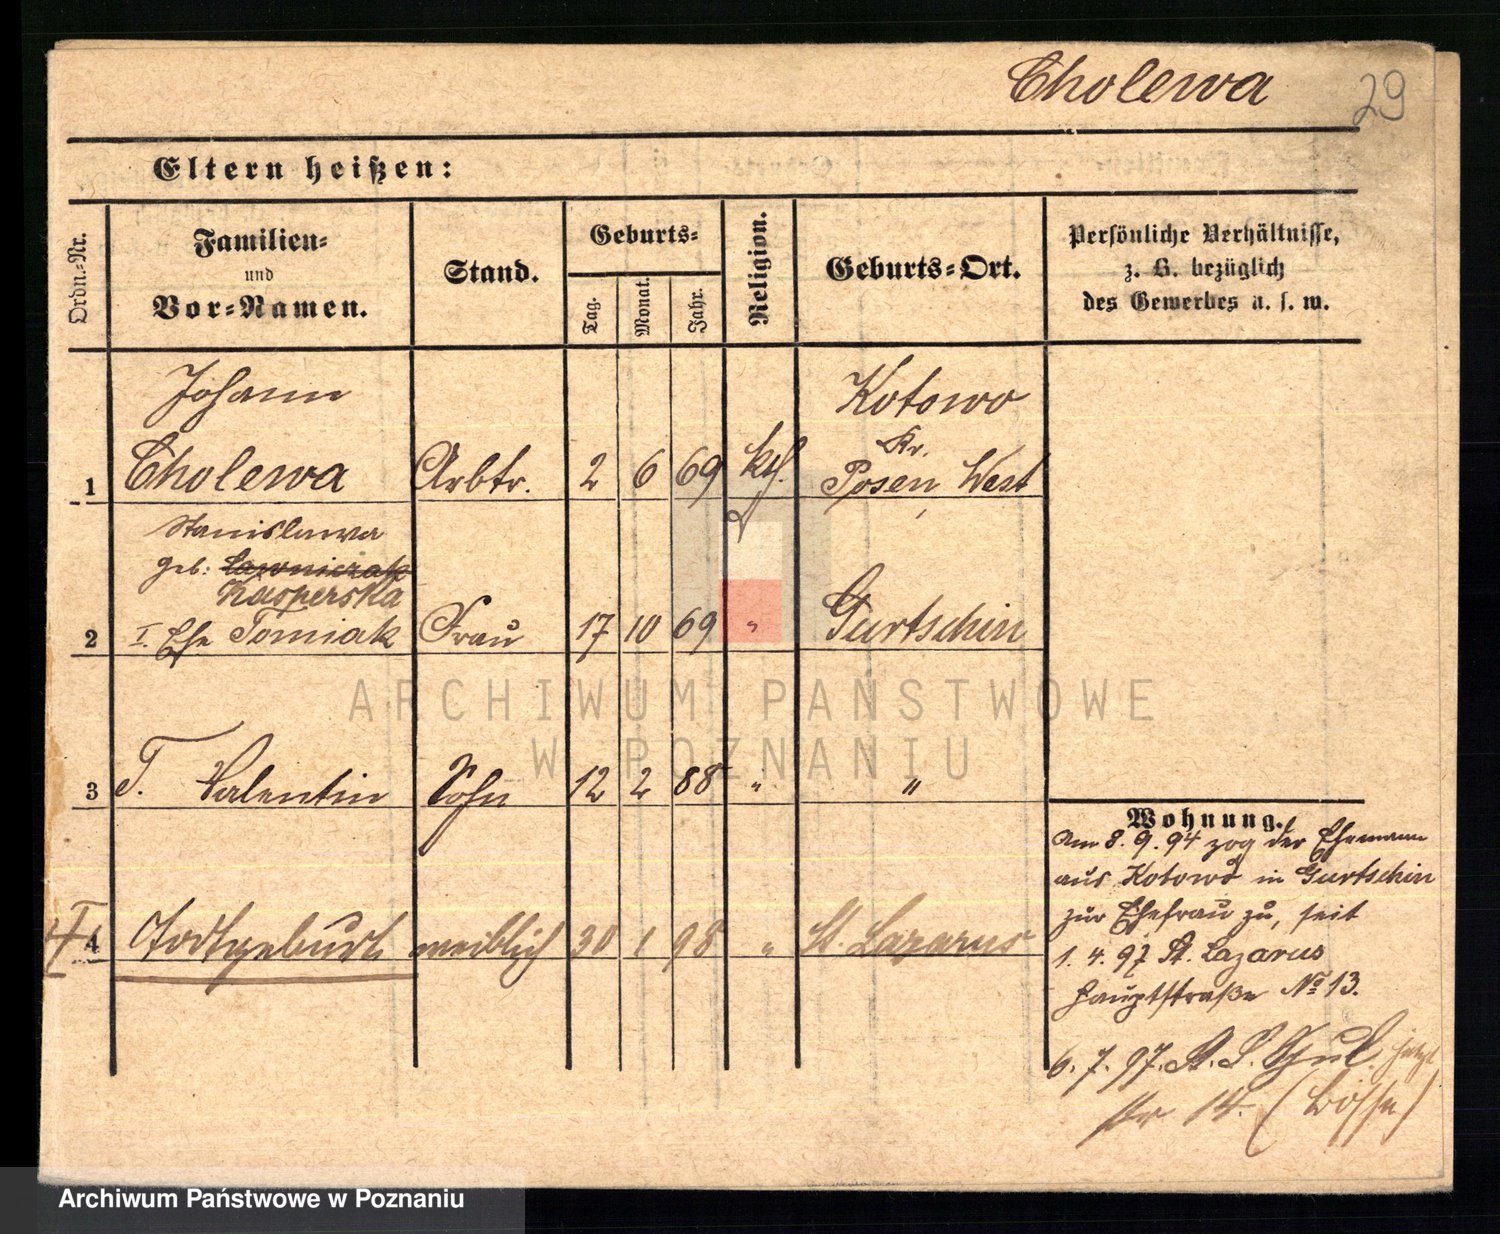 Cholewa 29
Eltern heißen:
Ordn.-Nr. Familien- und Vor-Namen. Stand. Geburts- Tag. Monat. Jahr. Religion. Geburts-Ort. Persönliche Verhältnisse, z. B. bezüglich des Gewerbes u. s. w.
Johann Kotowo
Kr.
1 Cholewa Arbtr. 2 6 69 kth. Posen West
Stanislawa
geb. Lawniczak
Kasperska
2 I. Ehe Tomiak Frau 17 10 69 " Gurtschin
3 T. Valentin Sohn 12 2 88 " "
4 Todtgeburt weiblich 30 1 98 " St. Lazarus
Wohnung.
Am 8. 9. 94 zog der Ehemann
aus Kotowo in Gurtschin
zur Ehefrau zu, seit
1. 4. 97 St. Lazarus
Hauptstraße No 13.
6. 7. 97. St. L. jetzt
str 14.
ARCHIWUM PAŃSTWOWE
W POZNANIU
Archiwum Państwowe w Poznaniu